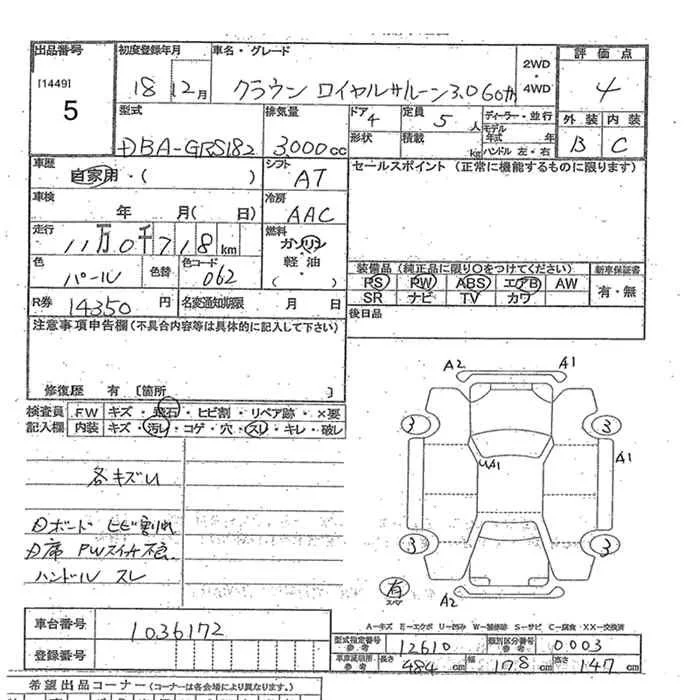 出品番号 初度登録年月 車名・グレード 2WD・4WD 評価点
[1449] 5 18 12月 クラウン ロイヤルサルーン3.0 60th 4
型式 排気量 ドア 4 定員 5人 ディーラー・並行 外装 内装
DBA-GRS182 3000cc 形状 積載 kg モデル年式 年 ハンドル 左・右 B C
車歴 シフト セールスポイント (正常に機能するものに限ります)
自家用・( ) AT
車検 冷房
年 月( 日) AAC
走行 燃料
11万0千718km ガソリン・軽油 ( )
色 色替 色コード 装備品 (純正品に限り○をつけてください) 新車保証書
パール 062 PS PW ABS エアB AW 有・無
R券 14350円 名変通知期限 月 日 SR ナビ TV カワ
注意事項申告欄 (不具合内容等は具体的に記入して下さい) 後日品
修復歴 有 〔箇所 〕
検査員 FW キズ・飛石・ヒビ割・リペア跡・×要
記入欄 内装 キズ・汚レ・コゲ・穴・スレ・キレ・破レ
各キズU
Dボード ヒビ割れ
D席 PWスイッチ不良
ハンドル スレ
A2 A1
3 3
UA1 A1
3 3
有 スペア
A2
A-キズ E-エクボ U-凹み W-補修跡 S-サビ C-腐食 XX-交換済
車台番号 1036172
登録番号
型式指定番号 参考 12610 類別区分番号 参考 0003
車庫証明用 参考 長さ 484cm 幅 178cm 高さ 147cm
希望出品コーナー (コーナーは各会場により異なります)